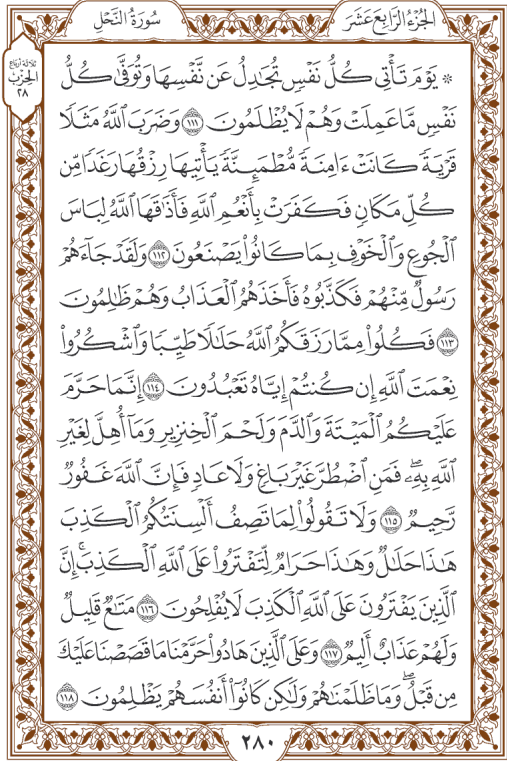 الجزء الرابع عشر
سورة النحل
ثلاثة أرباع
الحزب
٢٨
۞ يَوۡمَ تَأۡتِي كُلُّ نَفۡسٖ تُجَٰدِلُ عَن نَّفۡسِهَا وَتُوَفَّىٰ كُلُّ
نَفۡسٖ مَّا عَمِلَتۡ وَهُمۡ لَا يُظۡلَمُونَ ١١١ وَضَرَبَ ٱللَّهُ مَثَلٗا
قَرۡيَةٗ كَانَتۡ ءَامِنَةٗ مُّطۡمَئِنَّةٗ يَأۡتِيهَا رِزۡقُهَا رَغَدٗا مِّن
كُلِّ مَكَانٖ فَكَفَرَتۡ بِأَنۡعُمِ ٱللَّهِ فَأَذَٰقَهَا ٱللَّهُ لِبَاسَ
ٱلۡجُوعِ وَٱلۡخَوۡفِ بِمَا كَانُواْ يَصۡنَعُونَ ١١٢ وَلَقَدۡ جَآءَهُمۡ
رَسُولٞ مِّنۡهُمۡ فَكَذَّبُوهُ فَأَخَذَهُمُ ٱلۡعَذَابُ وَهُمۡ ظَٰلِمُونَ
١١٣ فَكُلُواْ مِمَّا رَزَقَكُمُ ٱللَّهُ حَلَٰلٗا طَيِّبٗا وَٱشۡكُرُواْ
نِعۡمَتَ ٱللَّهِ إِن كُنتُمۡ إِيَّاهُ تَعۡبُدُونَ ١١٤ إِنَّمَا حَرَّمَ
عَلَيۡكُمُ ٱلۡمَيۡتَةَ وَٱلدَّمَ وَلَحۡمَ ٱلۡخِنزِيرِ وَمَآ أُهِلَّ لِغَيۡرِ
ٱللَّهِ بِهِۦۖ فَمَنِ ٱضۡطُرَّ غَيۡرَ بَاغٖ وَلَا عَادٖ فَإِنَّ ٱللَّهَ غَفُورٞ
رَّحِيمٞ ١١٥ وَلَا تَقُولُواْ لِمَا تَصِفُ أَلۡسِنَتُكُمُ ٱلۡكَذِبَ
هَٰذَا حَلَٰلٞ وَهَٰذَا حَرَامٞ لِّتَفۡتَرُواْ عَلَى ٱللَّهِ ٱلۡكَذِبَۚ إِنَّ
ٱلَّذِينَ يَفۡتَرُونَ عَلَى ٱللَّهِ ٱلۡكَذِبَ لَا يُفۡلِحُونَ ١١٦ مَتَٰعٞ قَلِيلٞ
وَلَهُمۡ عَذَابٌ أَلِيمٞ ١١٧ وَعَلَى ٱلَّذِينَ هَادُواْ حَرَّمۡنَا مَا قَصَصۡنَا عَلَيۡكَ
مِن قَبۡلُۖ وَمَا ظَلَمۡنَٰهُمۡ وَلَٰكِن كَانُوٓاْ أَنفُسَهُمۡ يَظۡلِمُونَ ١١٨
٢٨٠